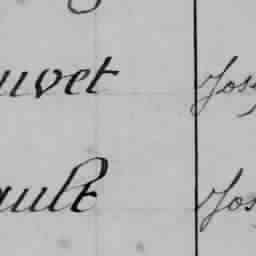 uvet Jos
ault Jos